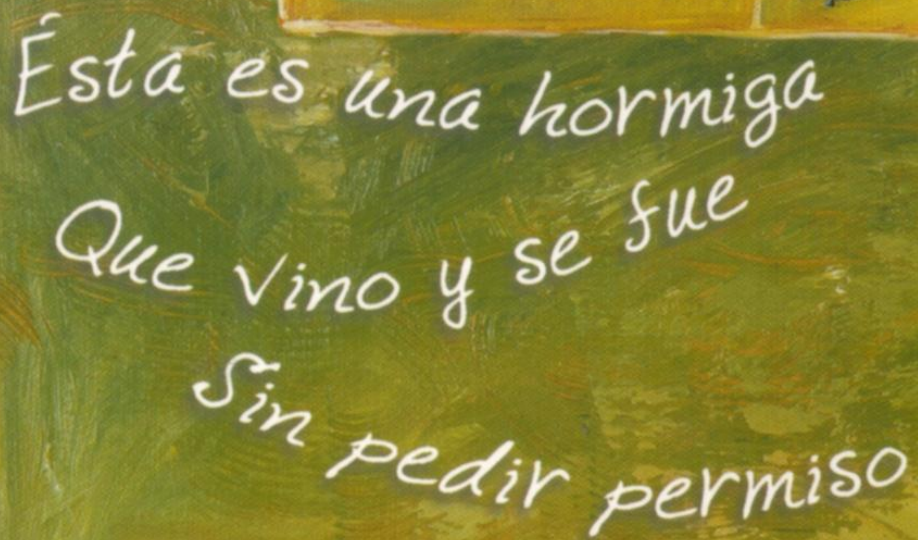 Ésta es una hormiga
Que vino y se fue
Sin pedir permiso